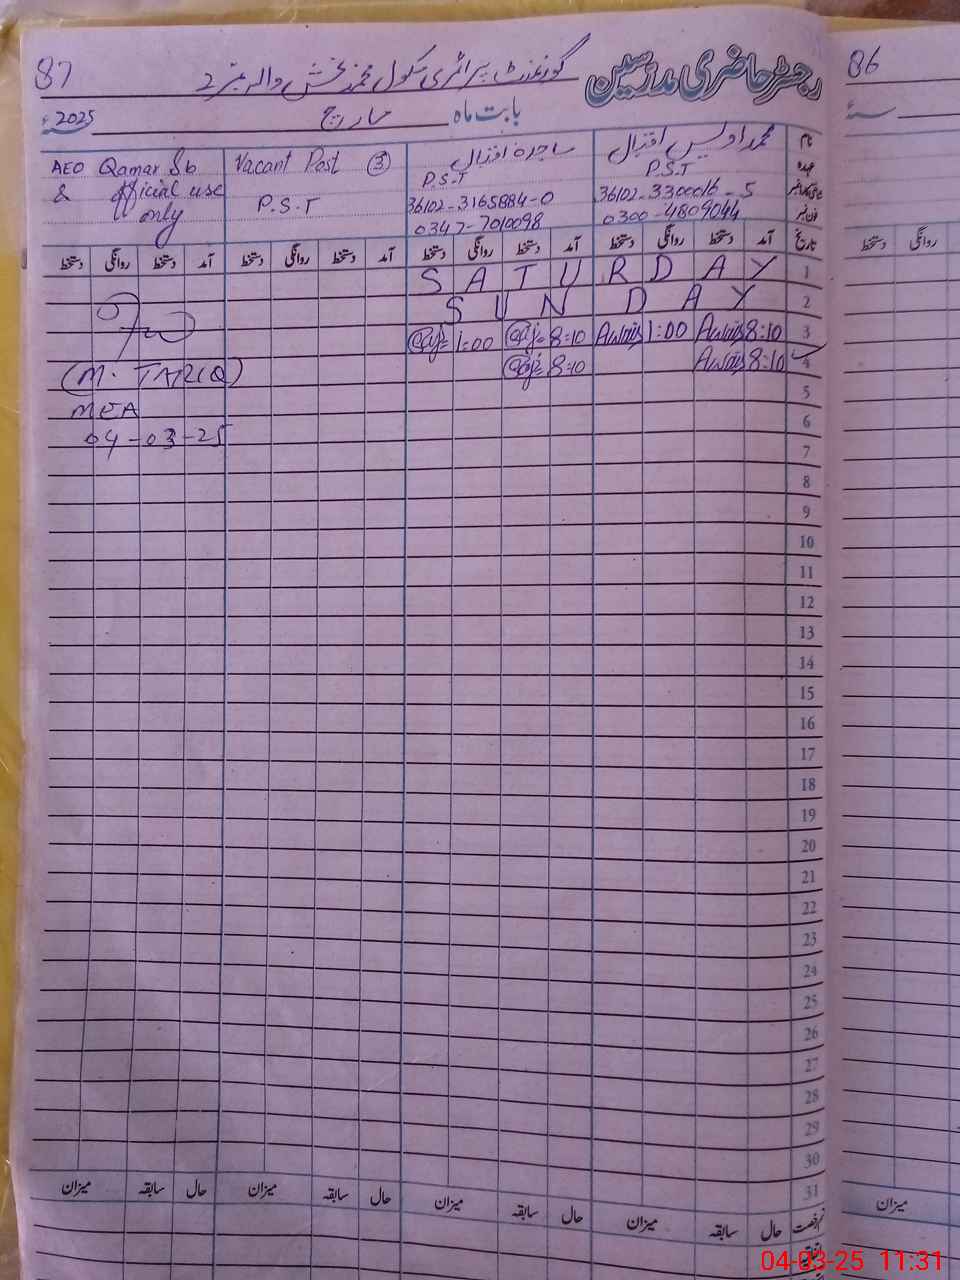 87 گورنمنٹ پرائمری سکول محمد بخش والہ نمبر 2 رجسٹر حاضری مدرسین
بابت ماہ مارچ 2025ء
نام محمد اویس اقبال ساجدہ اقبال Vacant Post ③ AEO Qamar Sb
عہدہ P.S.T P.S.T P.S.T & official use only
36102-3300016-5 36102-3165884-0
فون نمبر 0300-4809044 0347-7010098
تاریخ آمد دستخط روانگی دستخط آمد دستخط روانگی دستخط آمد دستخط روانگی دستخط آمد دستخط روانگی دستخط
1 SATURDAY
2 SUNDAY
3 8:10 Awais 1:00 Awais 8:10 1:00
4 8:10 Awais 8:10
(M. TARIQ)
5
MEA
6
04-03-25
7
8
9
10
11
12
13
14
15
16
17
18
19
20
21
22
23
24
25
26
27
28
29
30
31
حال سابقہ میزان حال سابقہ میزان حال سابقہ میزان حال سابقہ میزان
86
ء
روانگی دستخط
میزان
04-03-25 11:31